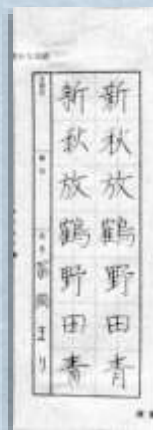 新秋放鶴野田青
新秋放鶴野田青